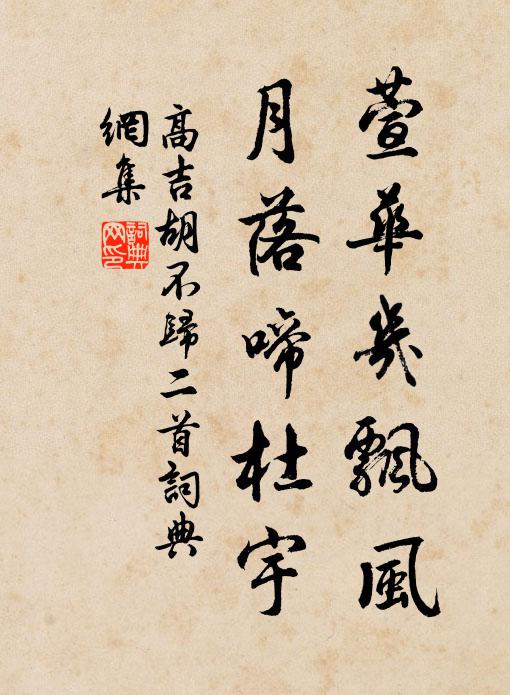 萱華幾飄風
月落啼杜宇
高吉胡不歸二首詞典
網集
詞典
网印